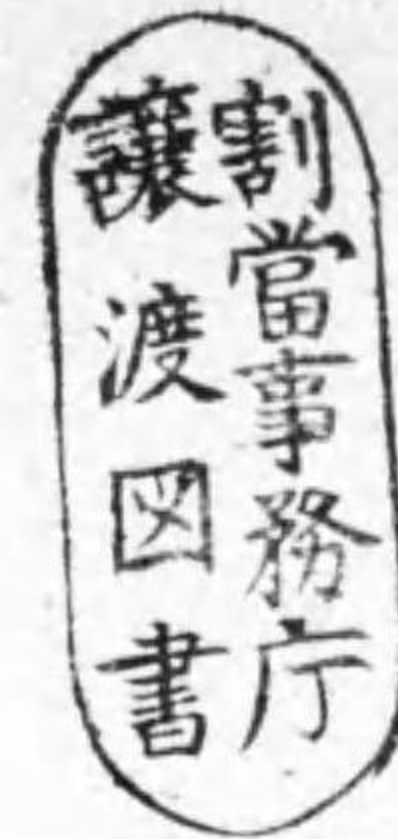 割當事務庁
譲渡図書